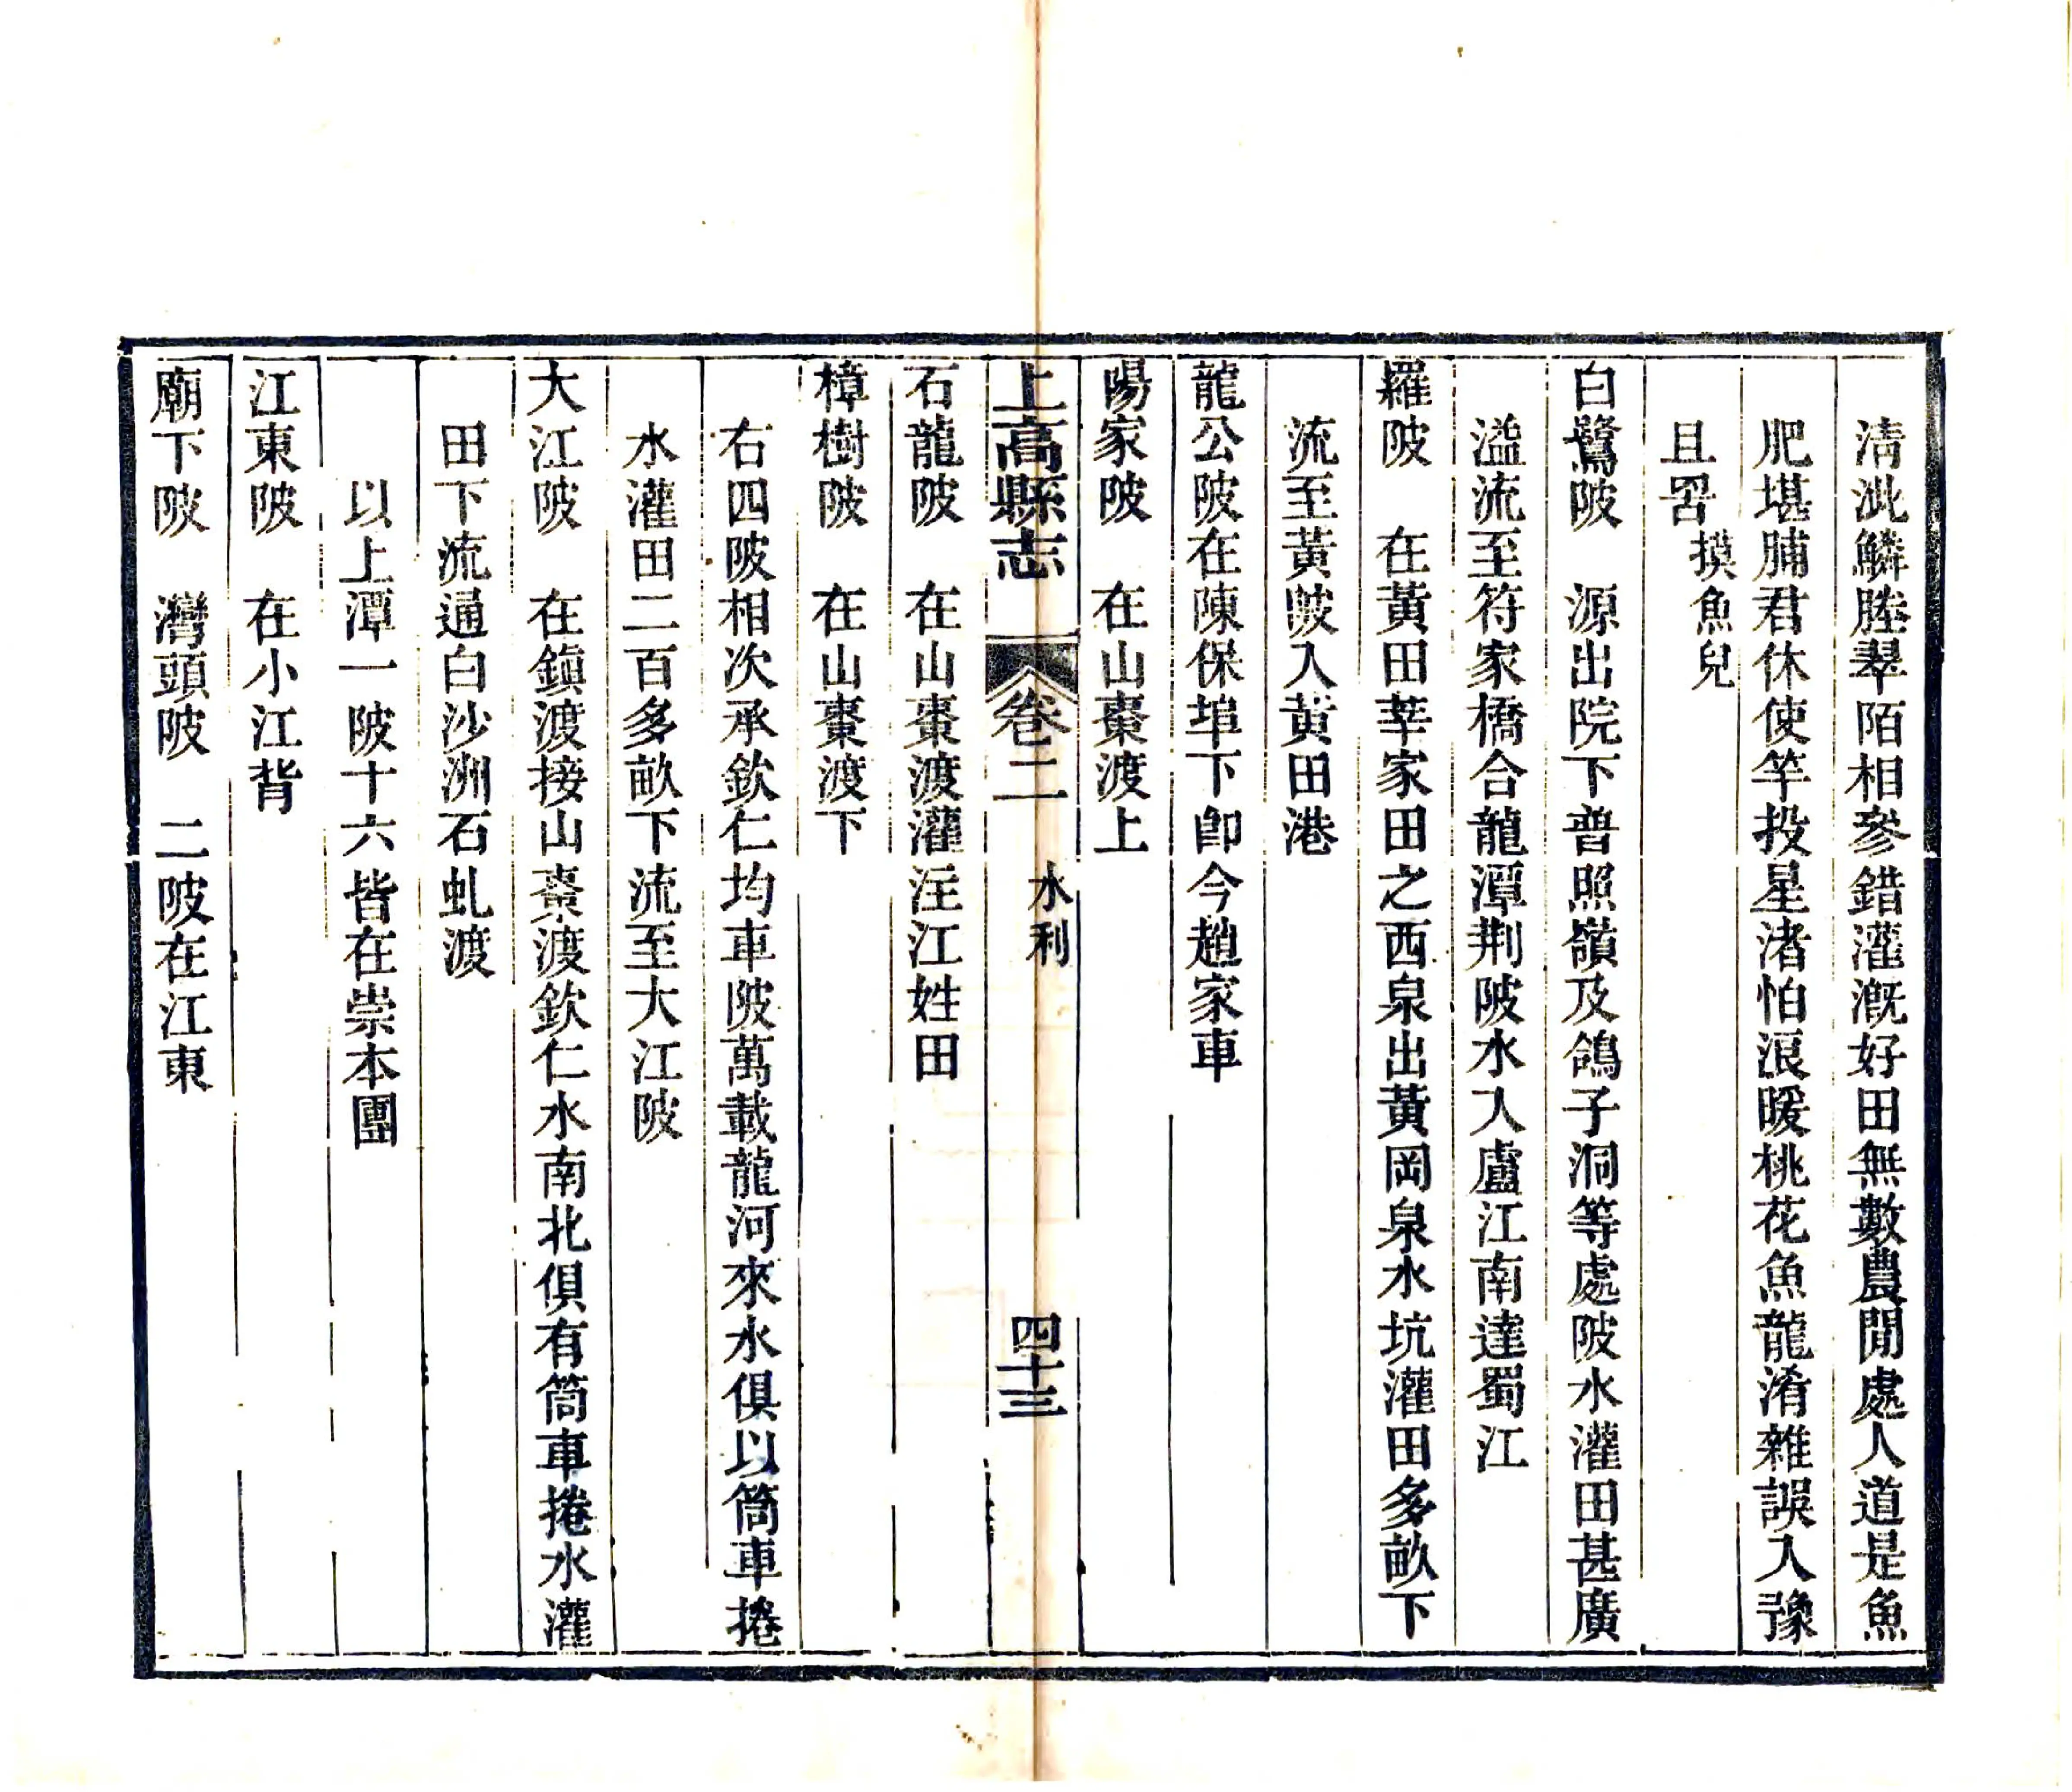 清泚鱗塍翠陌相參錯灌溉好田無數農閒處人道是魚
肥堪脯君休使竿投星渚怕浪暖桃花魚龍淆雜誤入豫
且罟 摸魚兒
白鷺陂　源出院下普照嶺及鴿子洞等處陂水灌田甚廣
溢流至符家橋合龍潭荆陂水入盧江南達蜀江
羅陂　在黃田莘家田之西泉出黃岡泉水坑灌田多畝下
流至黃陂入黃田港
龍公陂在陳保埠下卽今趙家車
陽家陂　在山棗渡上
上高縣志　卷二　水利　四十三
石龍陂　在山棗渡灌注江姓田
樟樹陂　在山棗渡下
右四陂相次承欽仁均車陂萬載龍河來水俱以筒車捲
水灌田二百多畝下流至大江陂
大江陂　在鎭渡接山棗渡欽仁水南北俱有筒車捲水灌
田下流通白沙洲石虬渡
以上潭一陂十六皆在崇本團
江東陂　在小江背
廟下陂　灣頭陂　二陂在江東